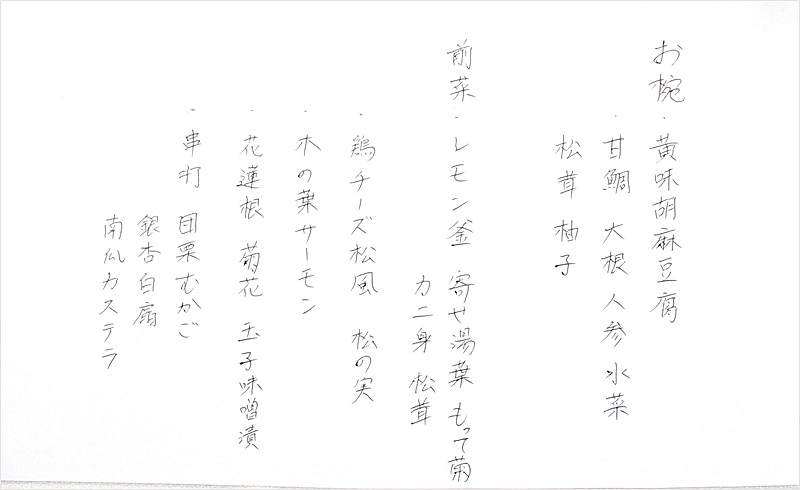 お椀・黄味胡麻豆腐
・甘鯛 大根 人参 水菜
松茸 柚子
前菜・レモン釜 寄せ湯葉 もって菊
カニ身 松茸
・鶏チーズ松風 松の実
・木の葉サーモン
・花蓮根 菊花 玉子味噌漬
・串打 団栗むかご
銀杏白扇
南瓜カステラ